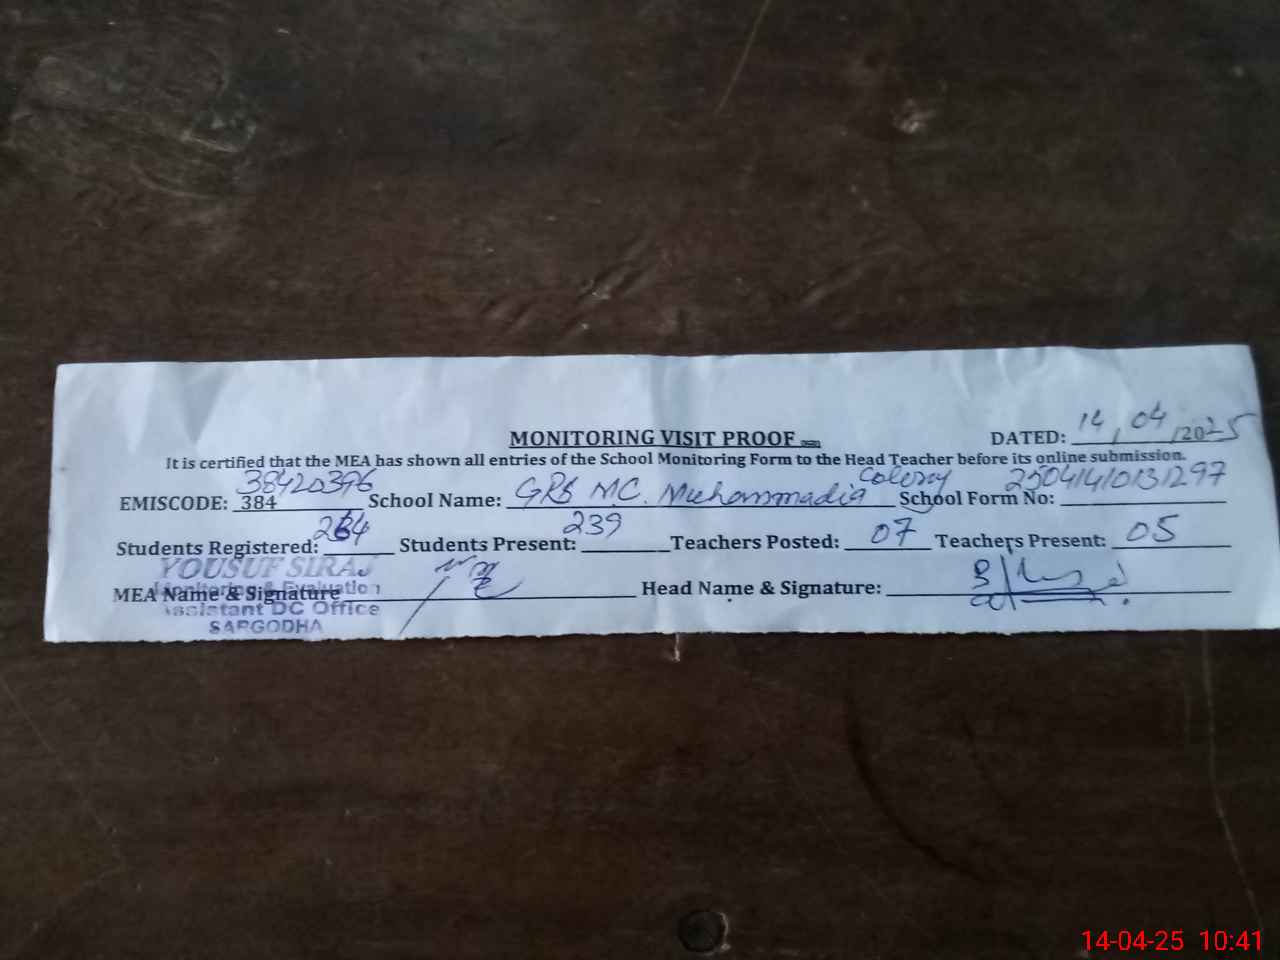 MONITORING VISIT PROOF
DATED: 14/04/2025
It is certified that the MEA has shown all entries of the School Monitoring Form to the Head Teacher before its online submission.
EMISCODE: 384 38420396 School Name: GPS MC. Muhammadia Colony School Form No: 25041410131297
Students Registered: 264 Students Present: 239 Teachers Posted: 07 Teachers Present: 05
YOUSUF SIRAJ
MEA Name & Signature Head Name & Signature:
Monitoring & Evaluation
Assistant DC Office
SARGODHA
14-04-25 10:41